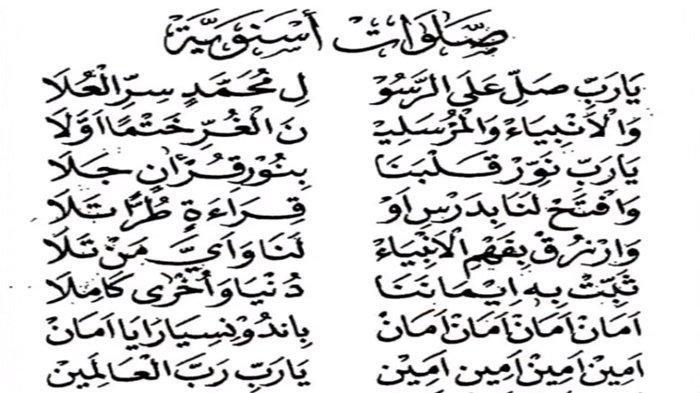 صَلَوَاتْ أَسْنَوِيَّة
يَارَبِّ صَلِّ عَلَى الرَّسُوْ لِ مُحَمَّدٍ سِرِّ الْعُلَا
وَالْأَنْبِيَاءْ وَالْمُرْسَلِيْـ نَ الْغُرِّ خَتْمًا أَوَّلَا
يَارَبِّ نَوِّرْ قَلْبَنَا بِنُوْرِ قُرْأٰنٍ جَلَا
وَافْتَحْ لَنَا بِدَرْسٍ اَوْ قِرَاءَةٍ طُرًّا تَلَا
وَارْزُقْ بِفَهْمِ الْاَنْبِيَاءْ لَنَا وَاَيِّ مَنْ تَلَا
ثَبِّتْ بِهِ اِيْمَانَنَا دُنْيَا وَأُخْرٰى كَامِلَا
اَمَانْ اَمَانْ اَمَانْ اَمَانْ بِاندُونِسِيَا رَايَا اَمَانْ
اَمِيْنْ اَمِيْنْ اَمِيْنْ اَمِيْنْ يَارَبِّ رَبَّ الْعَالَمِيْنْ